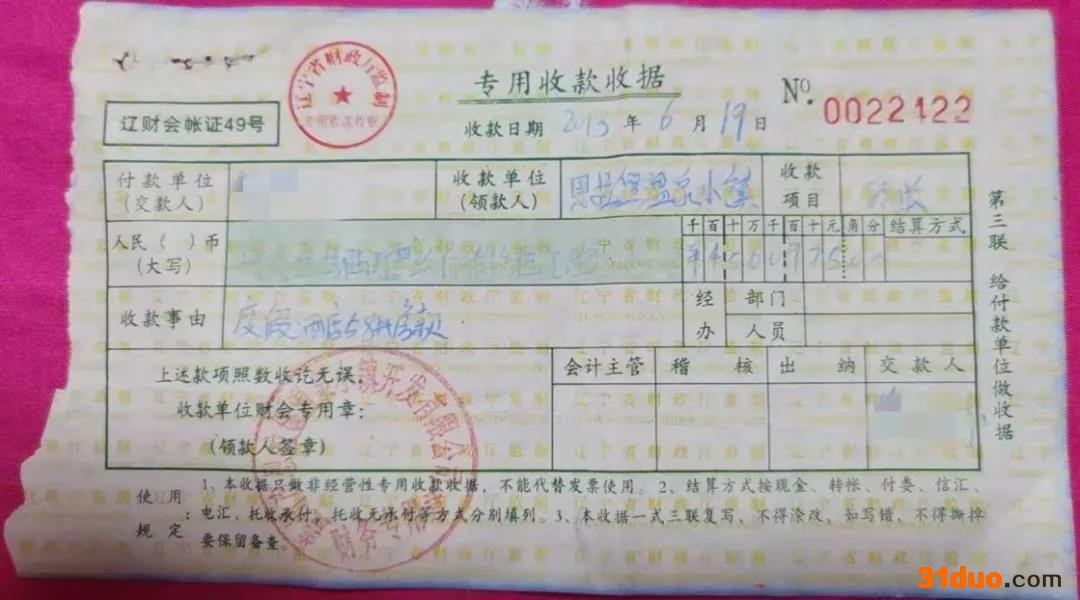 辽宁省财政厅监制
专用收款收据
专用收款收据
No. 0022122
辽财会帐证49号
收款日期 2013 年 6 月 19 日
付款单位
(交款人)
收款单位
(领款人)
温泉小镇
收款
项目
人民( )币
(大写)
千百十万千百十元角分
结算方式
收款事由
度假酒店
经办
部门
人员
第三联 给付款单位做收据
上述款项照数收讫无误。
收款单位财会专用章:
(领款人签章)
会计主管
稽核
出纳
交款人
镇开发有限公司
财务专用
使用规定:
1、本收据只做非经营性专用收款收据,不能代替发票使用。2、结算方式按现金、转帐、付委、信汇、
电汇、托收承付、托收无承付等方式分别填列。3、本收据一式三联复写,不得涂改,如写错,不得撕掉
要保留备查。
31duo.com